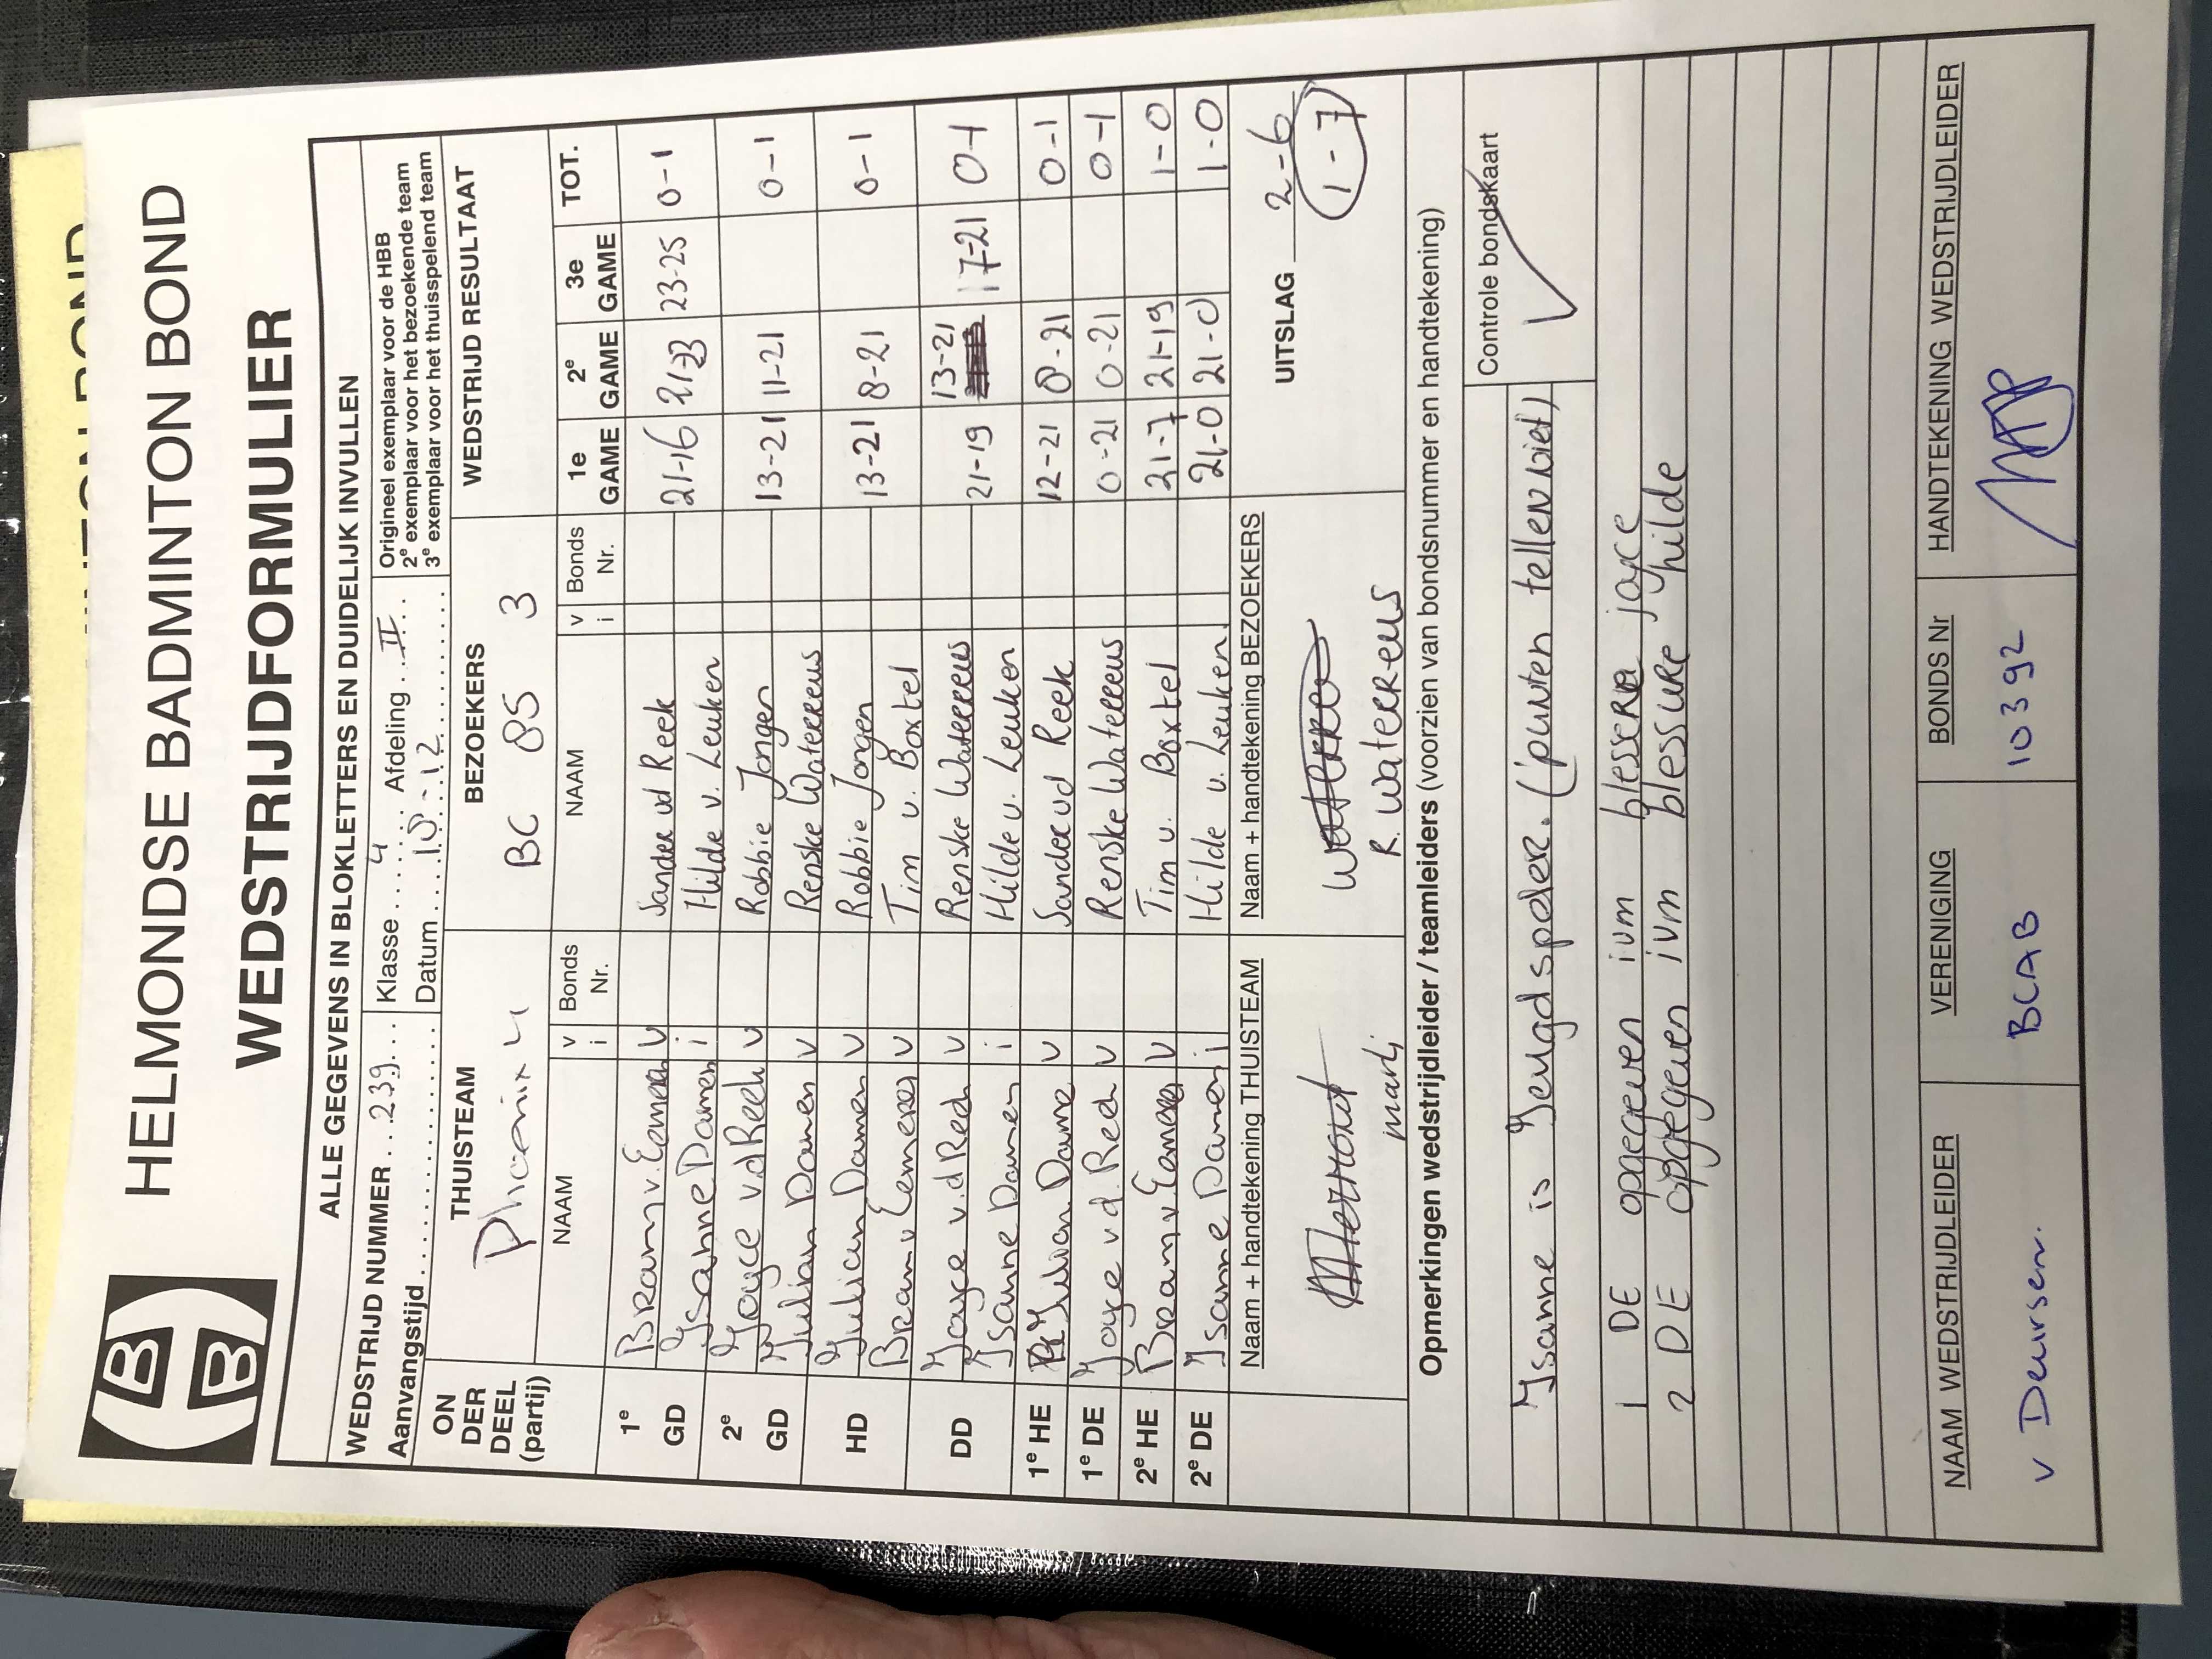 HELMONDSE BADMINTON BOND
WEDSTRIJDFORMULIER
HBB
ALLE GEGEVENS IN BLOKLETTERS EN DUIDELIJK INVULLEN
WEDSTRIJD NUMMER 239 Klasse 4 Afdeling II
Aanvangstijd Datum 18-12
Origineel exemplaar voor de HBB
2e exemplaar voor het bezoekende team
3e exemplaar voor het thuisspelend team
ON DER DEEL (partij) THUISTEAM BEZOEKERS WEDSTRIJD RESULTAAT
Phoenix 4 BC 85 3
NAAM v i Bonds Nr. NAAM v i Bonds Nr. 1e GAME 2e GAME 3e GAME TOT.
1e GD Bram v. Eemeren v Sander vd Reek 21-16 21-23 23-25 0-1
Isanne Damen i Hilde v. Leuken
2e GD Joyce v.d Reek v Robbie Jongen 13-21 11-21 0-1
Julian Damen v Renske Waterreus
HD Julian Damen v Robbie Jongen 13-21 8-21 0-1
Bram v Eemeren v Tim v. Boxtel
DD Joyce v.d Reek v Renske Waterreus 21-19 13-21 17-21 0-1
Isanne Damen i Hilde v. Leuken
1e HE Julian Dame v Sander vd Reek 12-21 8-21 0-1
1e DE Joyce v.d. Reek v Renske Waterreus 0-21 0-21 0-1
2e HE Bram v. Eemeren v Tim v. Boxtel 21-7 21-19 1-0
2e DE Isanne Damen i Hilde v. Leuken 21-0 21-0 1-0
Naam + handtekening THUISTEAM Naam + handtekening BEZOEKERS UITSLAG 2-6
1-7
R. Waterreus
Opmerkingen wedstrijdleider / teamleiders (voorzien van bondsnummer en handtekening)
Controle bondskaart
Isanne is Jeugdspeler. (punten tellen niet)
1 DE opgegeven ivm blessere joyce
2 DE opgegeven ivm blessure hilde
NAAM WEDSTRIJDLEIDER VERENIGING BONDS Nr HANDTEKENING WEDSTRIJDLEIDER
v Deursen. BCAB 10392